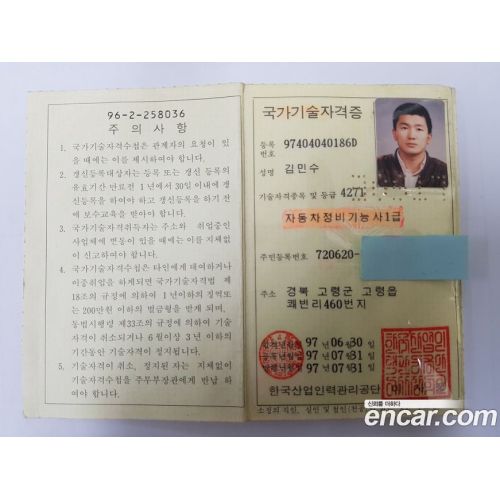 96-2-258036
주 의 사 항
1. 국가기술자격수첩은 관계자의 요청이 있
을 때에는 이를 제시하여야 합니다.
2. 갱신등록대상자는 등록 또는 갱신 등록의
유효기간 만료전 1년에서 30일이내에 갱
신등록을 하여야 하고 갱신등록을 하기 전
에 보수교육을 받아야 합니다.
3. 국가기술자격취득자는 주소와 취업중인
사업체에 변동이 있을 때에는 이를 지체없
이 신고하여야 합니다.
4. 국가기술자격수첩은 타인에게 대여하거나
이중취업을 하게되면 국가기술자격법 제
18조의 규정에 의하여 1년이하의 징역또
는 200만원 이하의 벌금형을 받게 되며,
동법시행령 제33조의 규정에 의하여 기술
자격이 취소되거나 6월이상 3년 이하의
기간동안 기술자격이 정지됩니다.
5. 기술자격이 취소, 정지된 자는 지체없이
기술자격수첩을 주무부장관에게 반납 하
여야 합니다.
국가기술자격증
등록
번호 97404040186D
성명 김민수
기술자격종목 및 등급 4271
자동차정비기능사1급
주민등록번호 720620-
주소 경북 고령군 고령읍
쾌빈리460번지
합격년월일 97 년 06 월 30 일
등록년월일 97 년 07 월 31 일
97 년 07 월 31 일
한국산업인력관리공단
신뢰를 더하다
encar.com